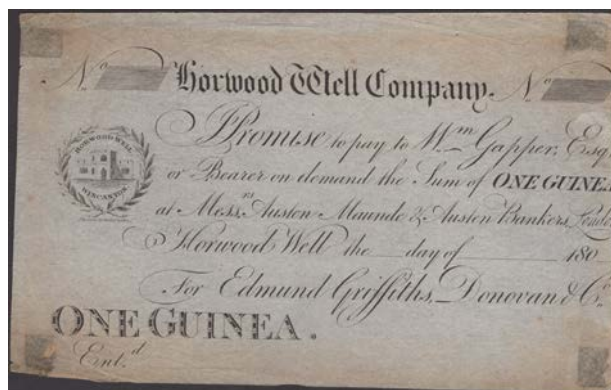 No Horwood Well Company. No
HORWOOD WELL
WINCANTON
I Promise to pay to Wm Gapper, Esqr
or Bearer on demand the Sum of ONE GUINEA
at Messrs Austen Maunde & Austen Bankers, London
Horwood Well the day of 180
For Edmund Griffiths, Donovan & Co.
ONE GUINEA.
Entd